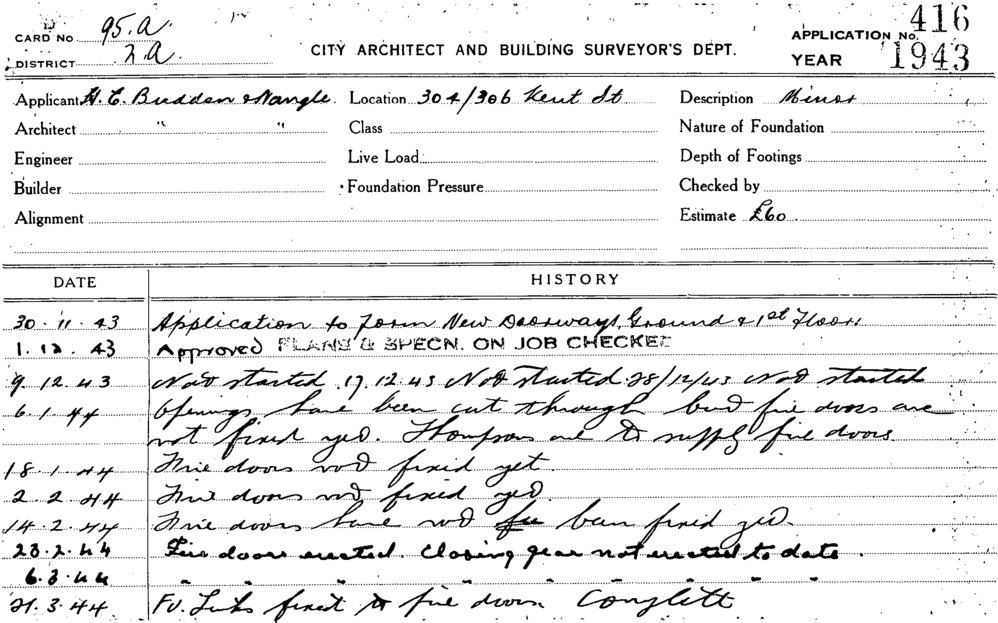 CARD NO 95.A
DISTRICT 2.A.
CITY ARCHITECT AND BUILDING SURVEYOR'S DEPT.
APPLICATION NO. 416
YEAR 1943
Applicant H. E. Budden & Nangle. Location 304/306 Kent St Description Minor
Architect " " Class Nature of Foundation
Engineer Live Load Depth of Footings
Builder Foundation Pressure Checked by
Alignment Estimate £60
DATE HISTORY
30.11.43 Application to form New Doorways, Ground & 1st Floor.
1.12.43 Approved PLANS & SPECN. ON JOB CHECKED
9.12.43 Not started 17.12.43 Not started 28/12/43 Not started
6.1.44 Openings have been cut through but fire doors are
not fixed yet. Thompsons are to supply fire doors
18.1.44 Fire doors not fixed yet.
2.2.44 Fire doors not fixed yet.
14.2.44 Fire doors have not been fixed yet.
23.2.44 Fire doors erected. Closing gear not erected to date.
6.3.44 " " " " " " " "
21.3.44 Fu. Links fixed to fire doors.